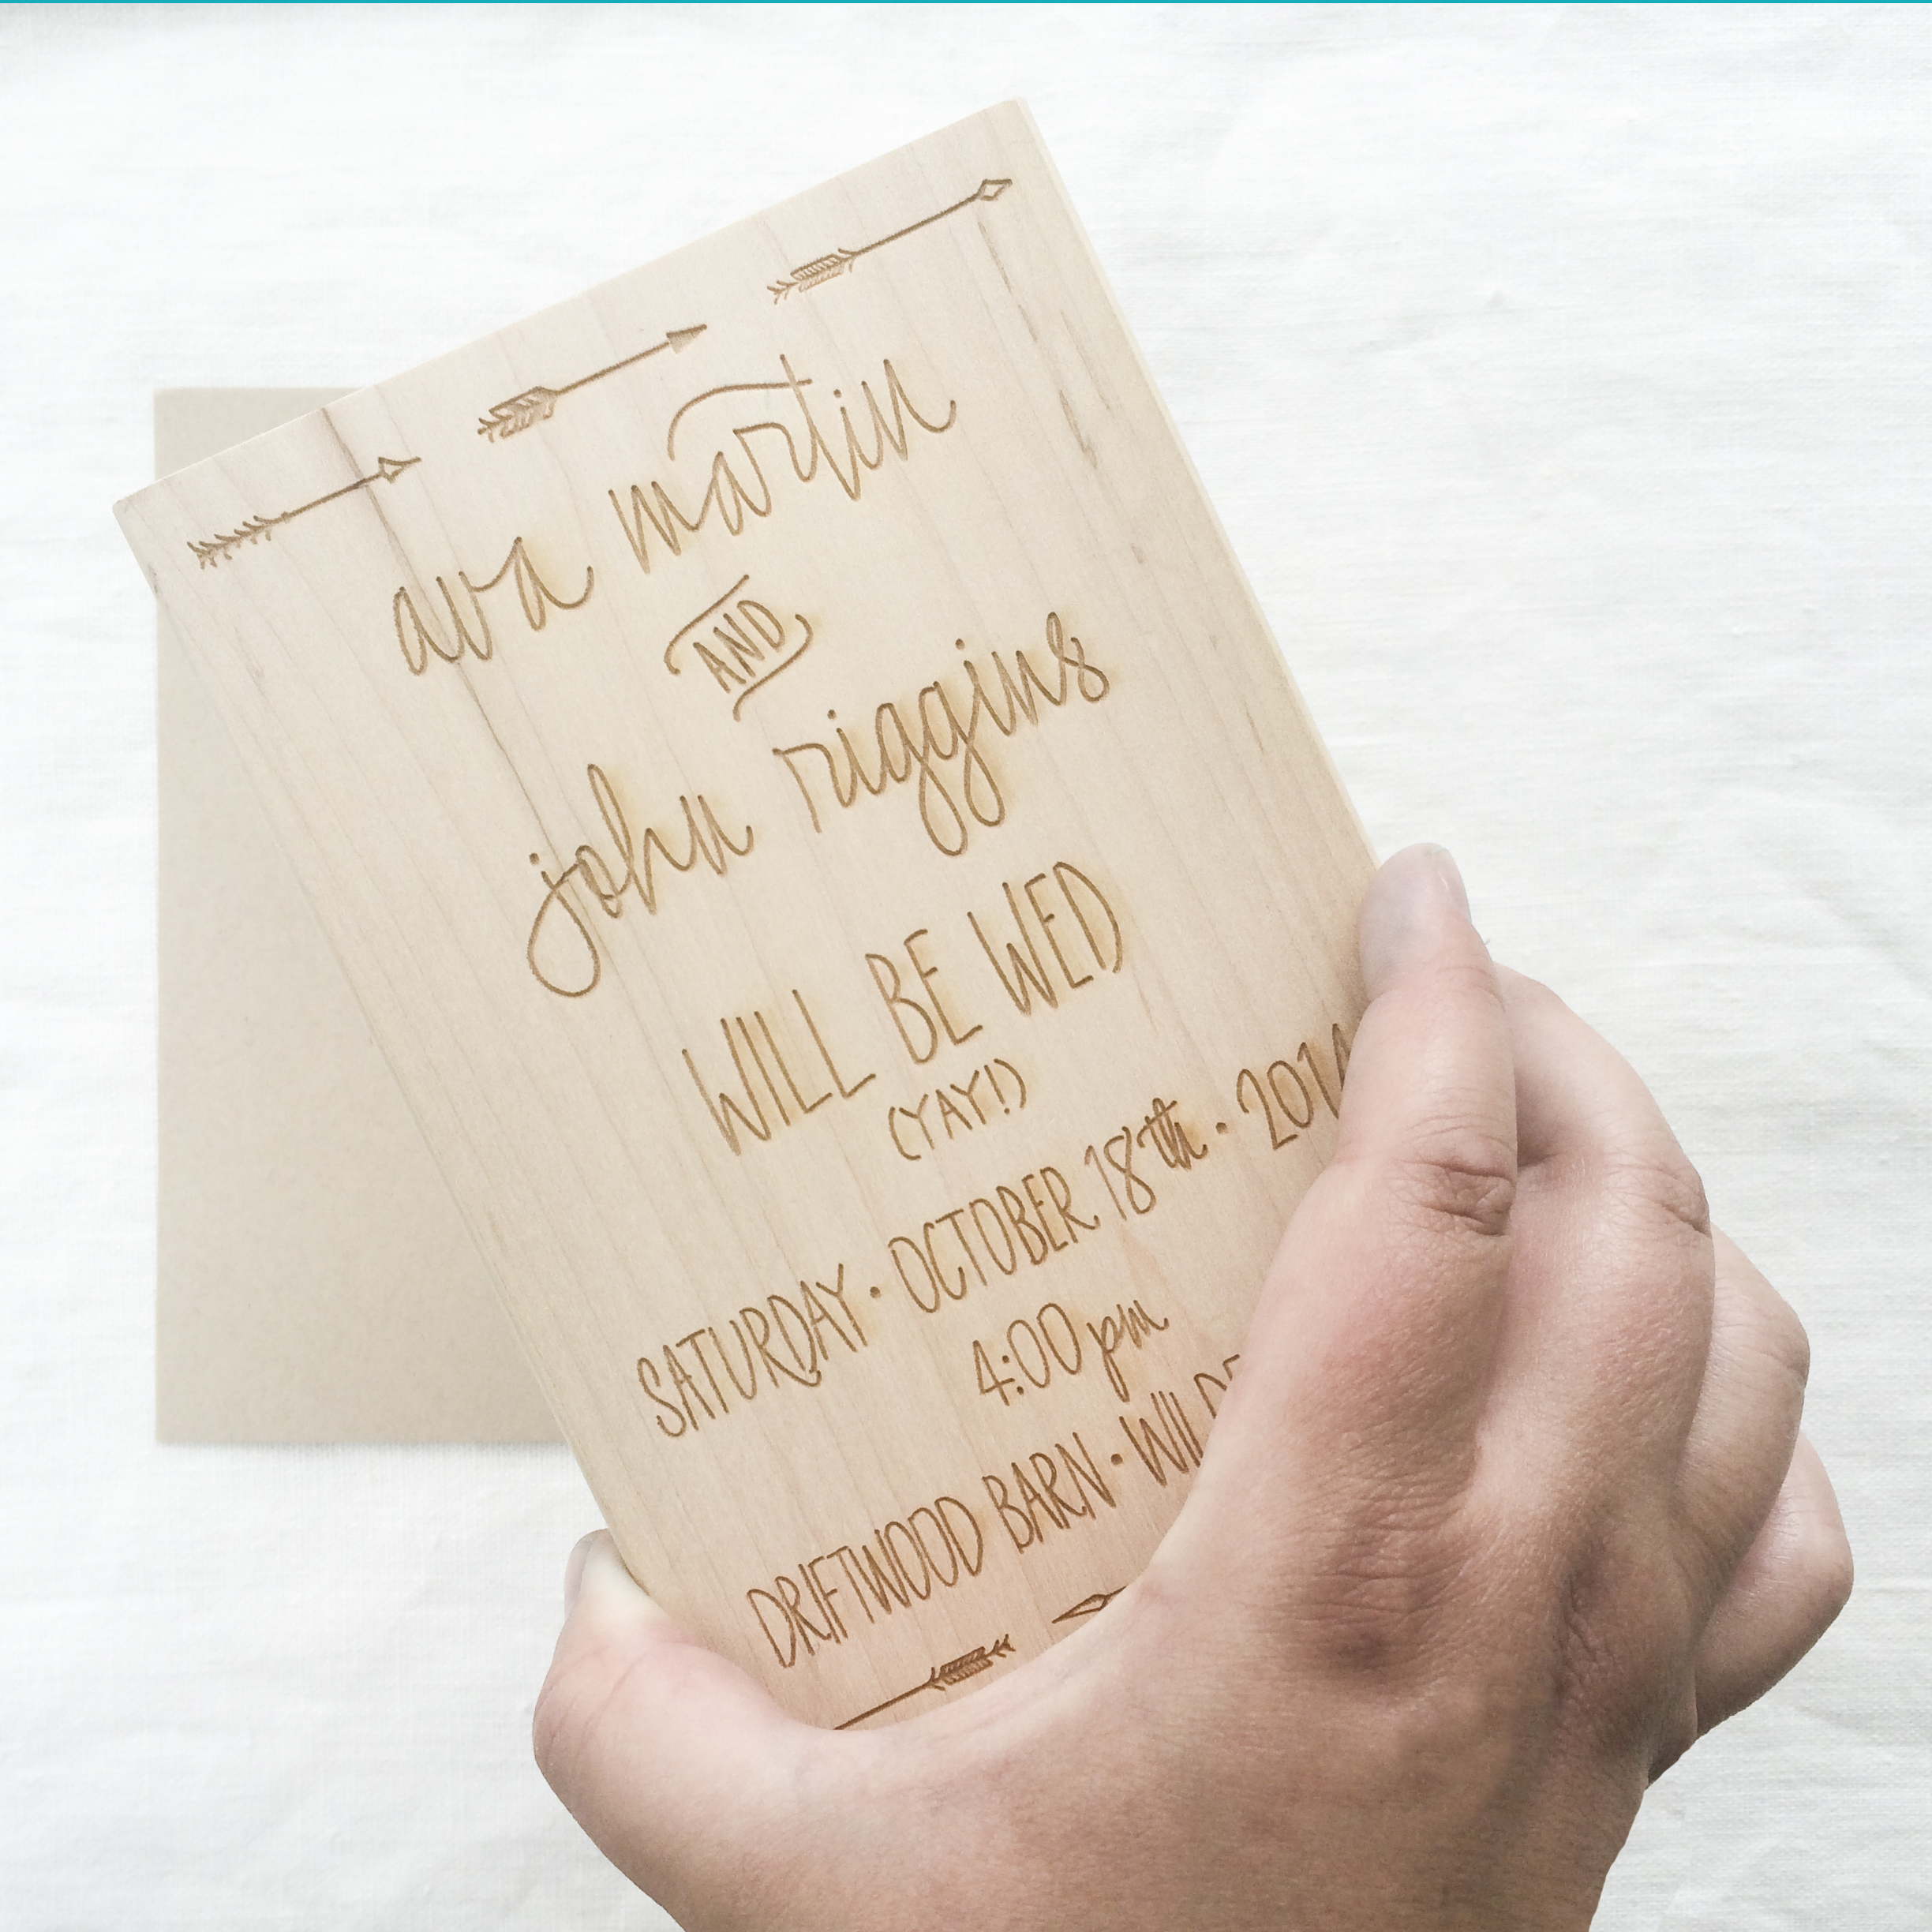 ava martin
AND
john riggins
WILL BE WED
(YAY!)
SATURDAY · OCTOBER 18th · 2014
4:00 pm
DRIFTWOOD BARN ·